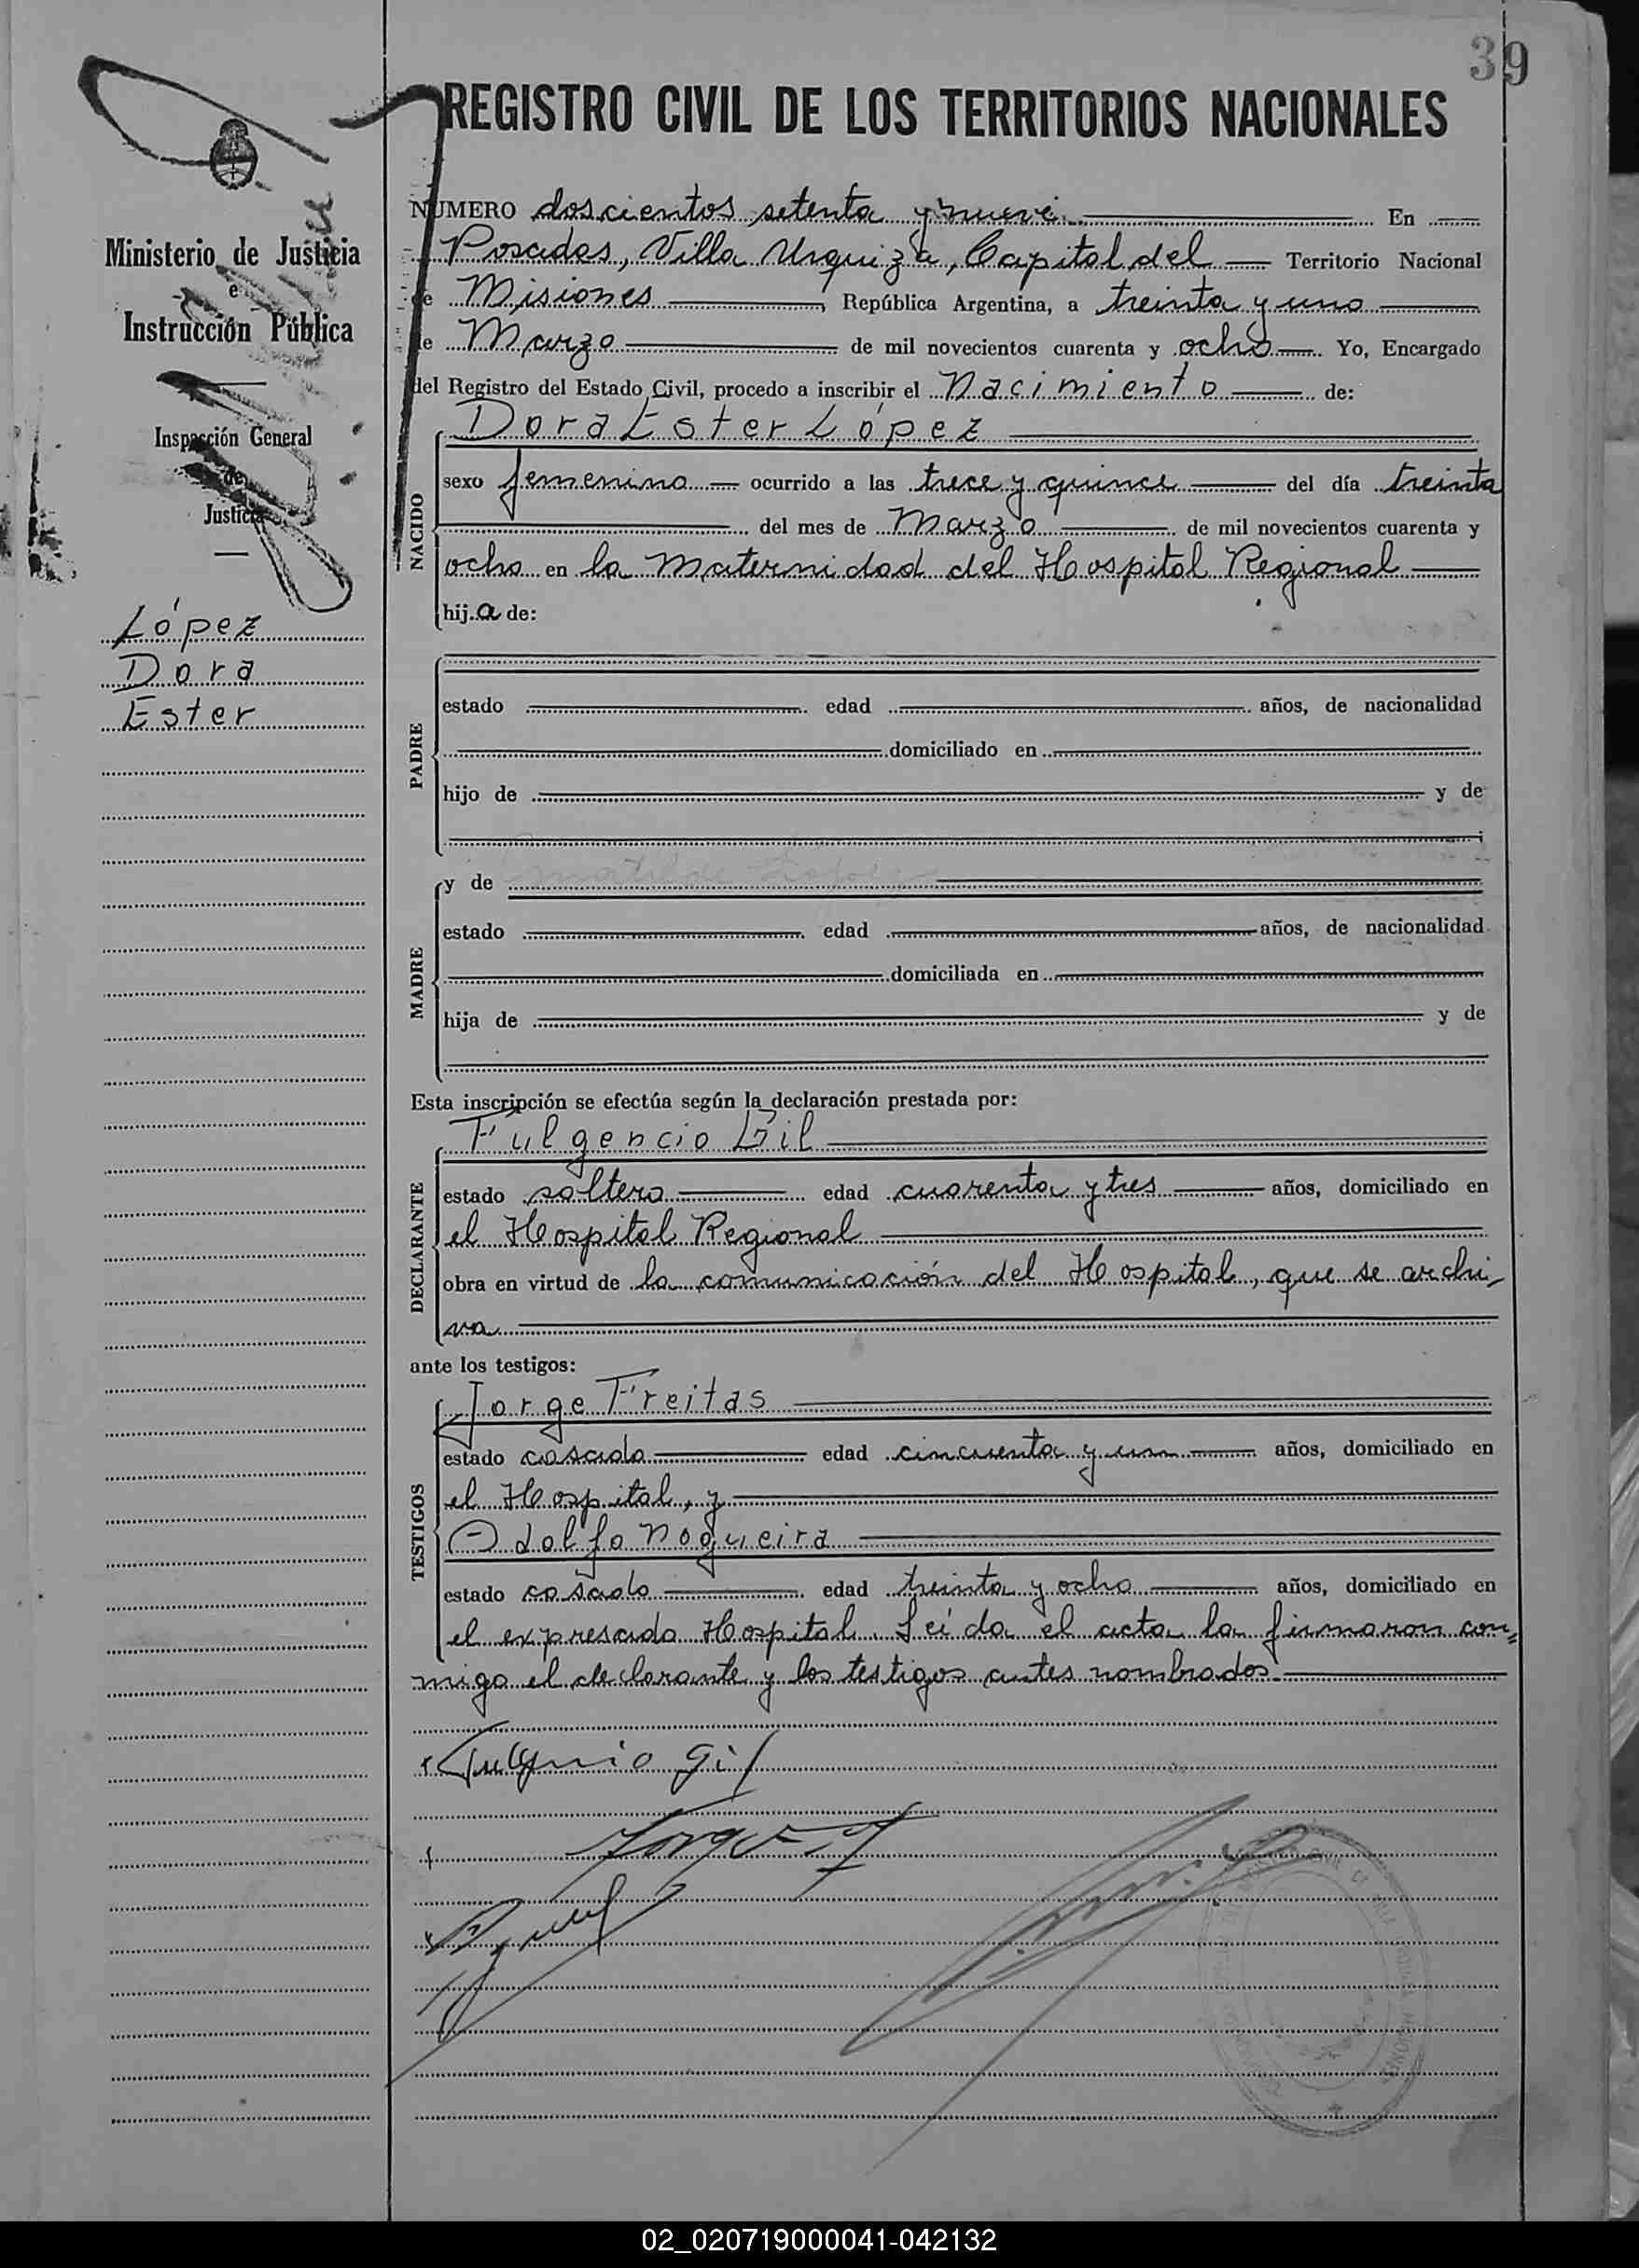 39
REGISTRO CIVIL DE LOS TERRITORIOS NACIONALES
Ministerio de Justicia
e
Instrucción Pública
Inspección General
de
Justicia
López
Dora
Ester
NÚMERO doscientos setenta y nueve En
Posadas, Villa Urquiza, Capital del Territorio Nacional
de Misiones, República Argentina, a treinta y uno
de Marzo de mil novecientos cuarenta y ocho. Yo, Encargado
del Registro del Estado Civil, procedo a inscribir el Nacimiento de:
Dora Ester López
NACIDO
sexo femenino ocurrido a las trece y quince del día treinta
del mes de Marzo de mil novecientos cuarenta y
ocho en la Maternidad del Hospital Regional
hija de:
PADRE
estado edad años, de nacionalidad
domiciliado en
hijo de y de
MADRE
y de
estado edad años, de nacionalidad
domiciliada en
hija de y de
Esta inscripción se efectúa según la declaración prestada por:
Fulgencio Gil
DECLARANTE
estado soltero edad cuarenta y tres años, domiciliado en
el Hospital Regional
obra en virtud de la comunicación del Hospital, que se archi-
va
ante los testigos:
Jorge Freitas
TESTIGOS
estado casado edad cincuenta y un años, domiciliado en
el Hospital, y
Adolfo Nogueira
estado casado edad treinta y ocho años, domiciliado en
el expresado Hospital. Leída el acta la firmaron con=
migo el declarante y los testigos antes nombrados.
Fulgencio Gil
Jorge F
02_020719000041-042132